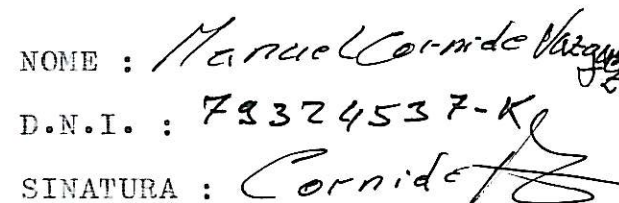 NOME : Manuel Cornide Vazquez
D.N.I. : 79324537-K
SINATURA : Cornide